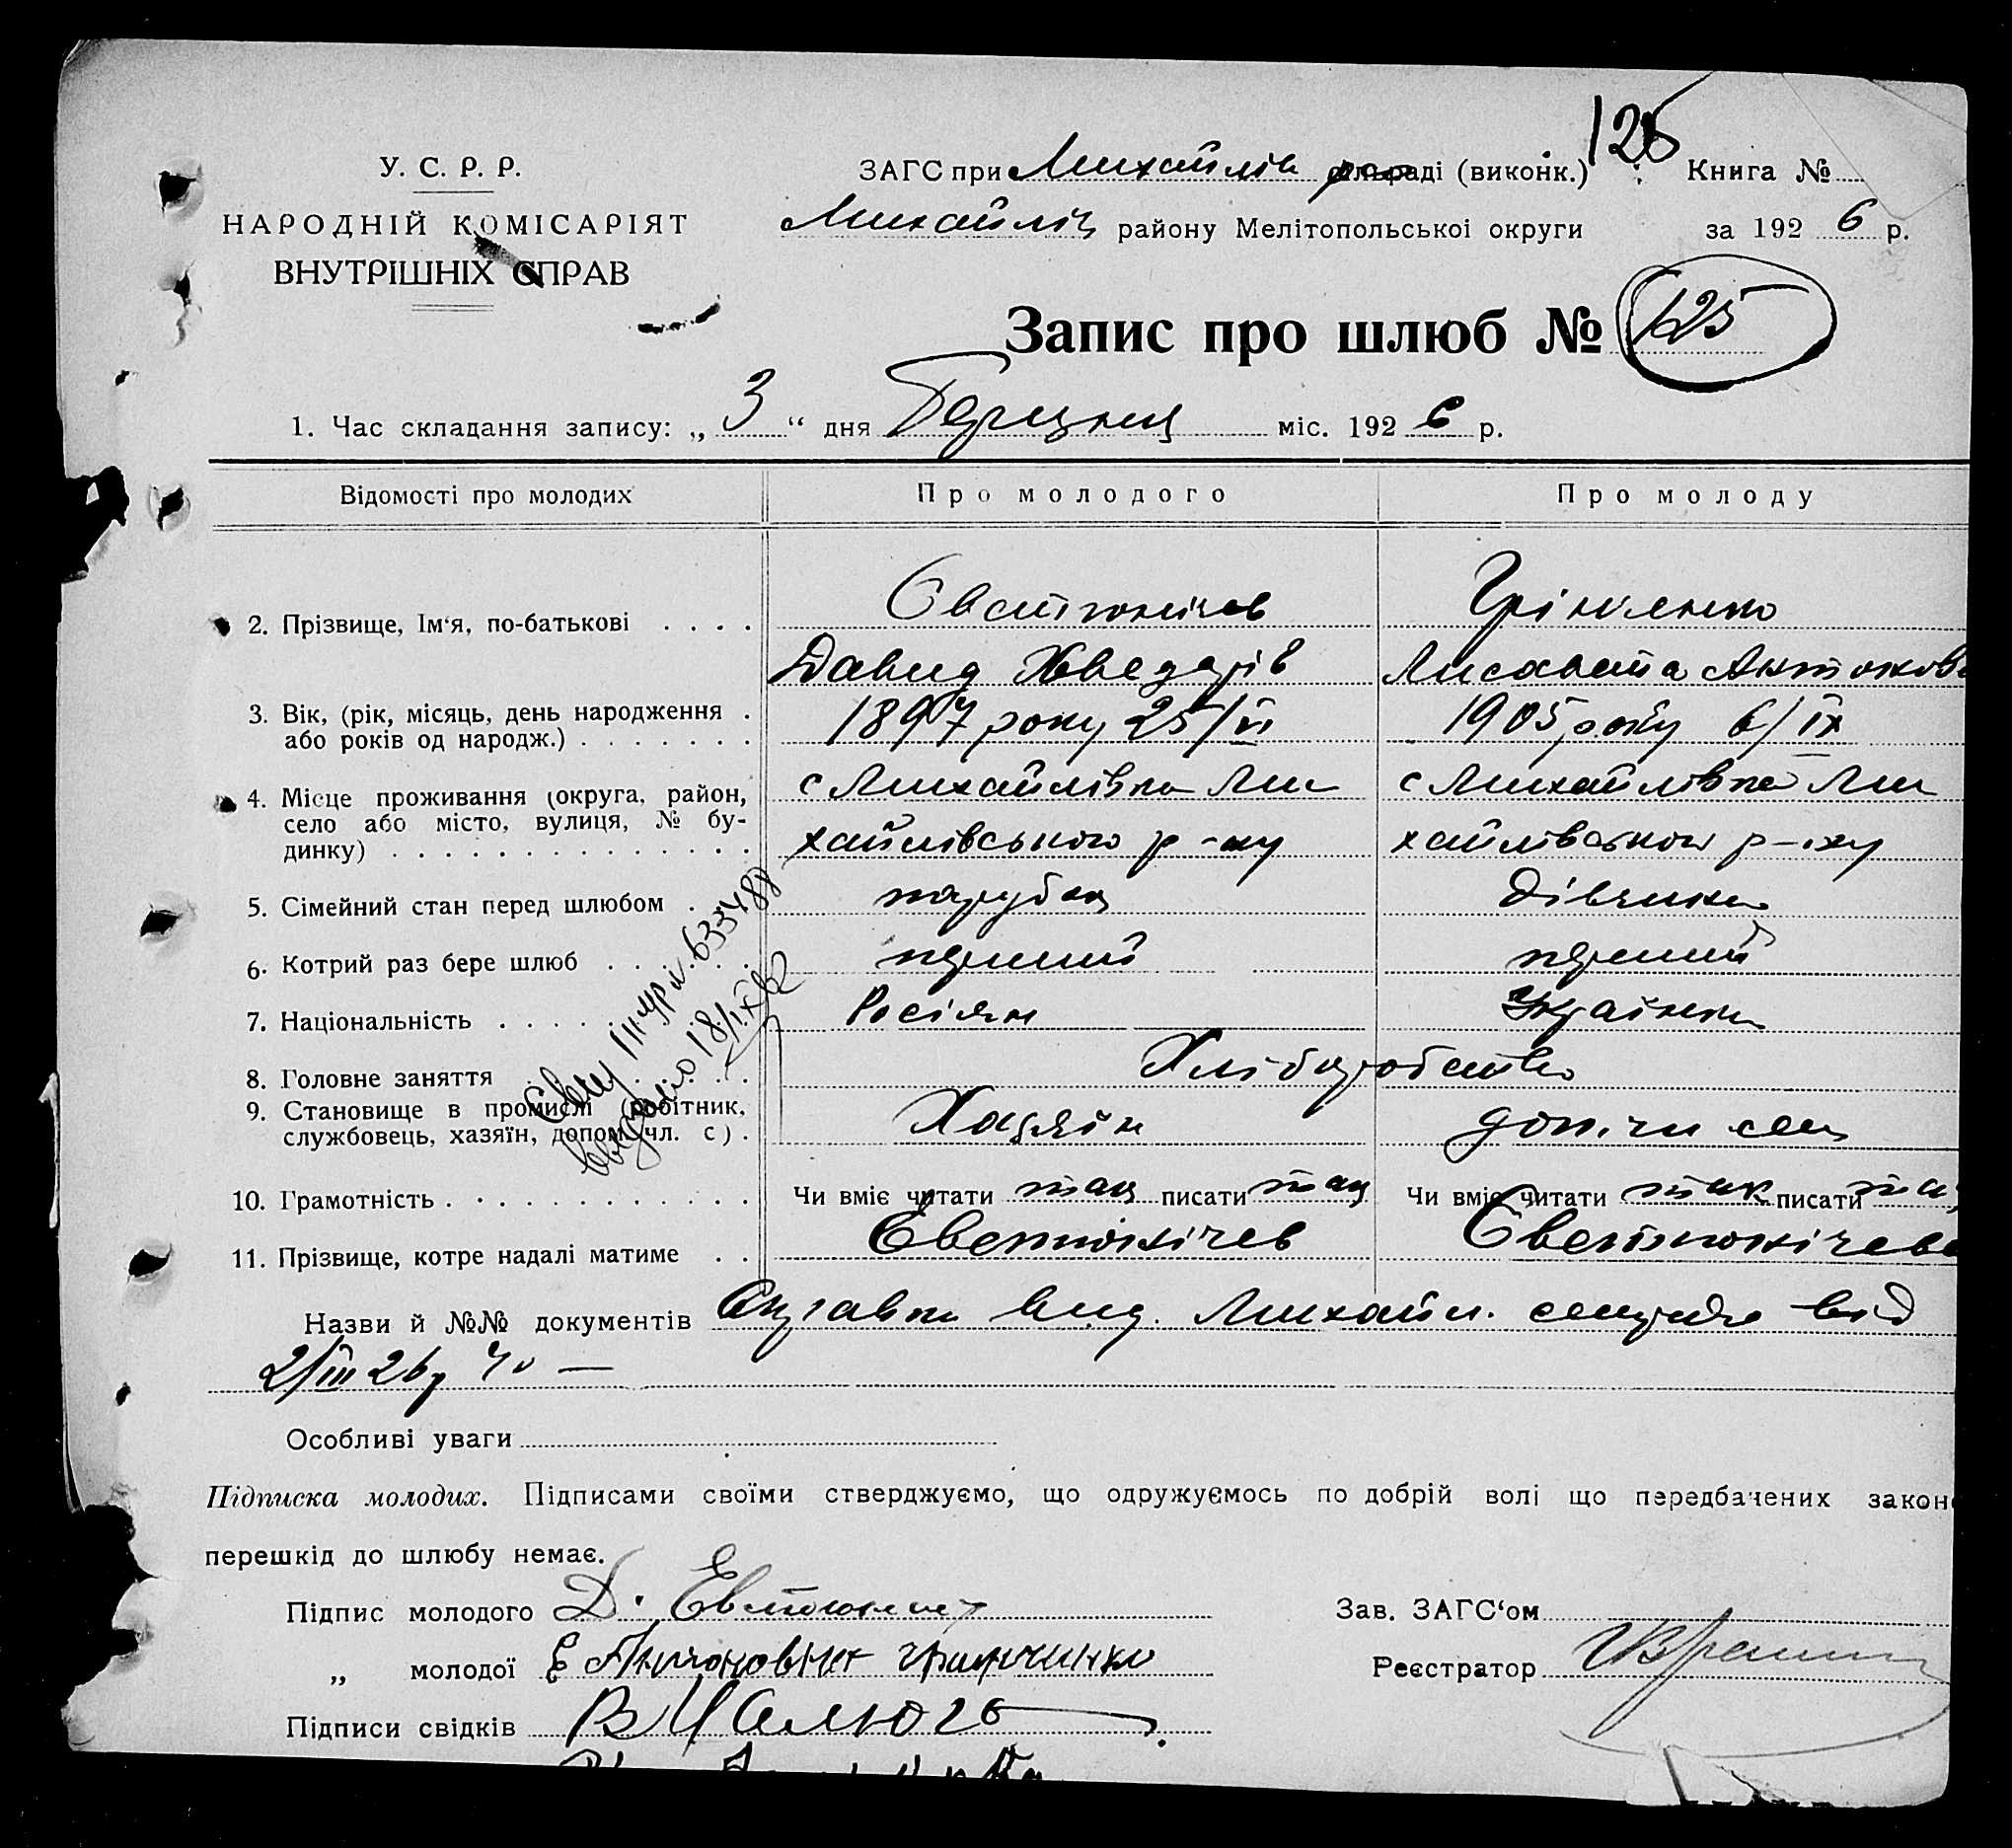 125
У. С. Р. Р. ЗАГС при Михайлів раді (виконк.) Книга №
НАРОДНІЙ КОМІСАРІЯТ Михайлів району Мелітопольскої округи за 1926 р.
ВНУТРІШНІХ СПРАВ
Запис про шлюб № 125
1. Час складання запису: „ 3 “ дня Березня міс. 1926 р.
Відомості про молодих Про молодого Про молоду
2. Прізвище, Ім‘я, по-батькові Євстюнічев Грінченко
Давид Хведорів Лисавета Антонов
3. Вік, (рік, місяць, день народження 1897 року 25/VI 1905 року 6/IX
або років од народж.)
4. Місце проживання (округа, район, с Михайлівка Ми с Михайлівка Ми
село або місто, вулиця, № бу-
динку) хайлівського р-ну хайлівського р-ну
5. Сімейний стан перед шлюбом парубок Дівчина
6. Котрий раз бере шлюб перший перший
7. Національність Росіян Українка
8. Головне заняття Хліборобство
9. Становище в промислі (робітник, Хазяїн
службовець, хазяїн, допом. чл. с) . допом. чл сем
10. Грамотність Чи вміє читати так писати так Чи вміє читати так писати так
11. Прізвище, котре надалі матиме Євстюнічев Євстюнічева
633488
18/IX
Назви й №№ документів Справка вид. Михайл. сельрадо від
2/III 26р
Особливі уваги
Підписка молодих. Підписами своїми стверджуємо, що одружуємось по добрій волі що передбачених закон
перешкід до шлюбу немає.
Підпис молодого Д. Зав. ЗАГС‘ом
„ молодої Е Антоновна Реєстратор
Підписи свідків В